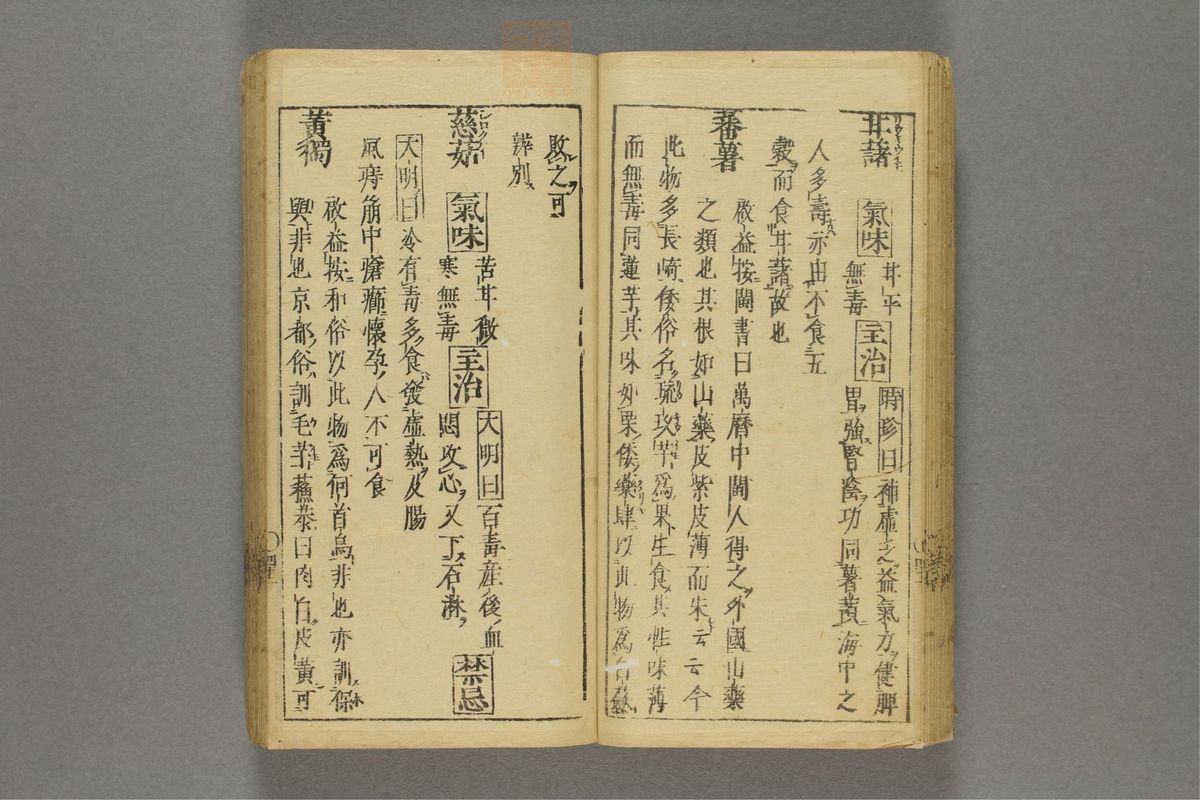 甘藷 氣味 甘平
無毒 主治 時珍曰補虛乏益氣力健脾
胃強腎陰功同薯蕷海中之
人多壽亦由不食五
穀而食甘藷故也
蕃薯
啟益按閩書曰萬曆中閩人得之外國山藥
之類也其根如山藥皮紫皮薄而朱云云今
此物多長崎倭俗名琉球芋為果生食其性味薄
而無毒同蓮芋其味如栗倭藥肆以此物為白
敗之可
辨別
慈姑 氣味 苦甘微
寒無毒 主治 大明曰百毒產後血
悶攻心又下石淋 禁忌
大明曰冷有毒多食發虛熱及腸
風痔崩中瘡癤懷孕人不可食
黃獨
啟益按和俗以此物為何首烏非也亦訓保
與非也京都俗訓毛芋蘇恭曰肉白皮黃可